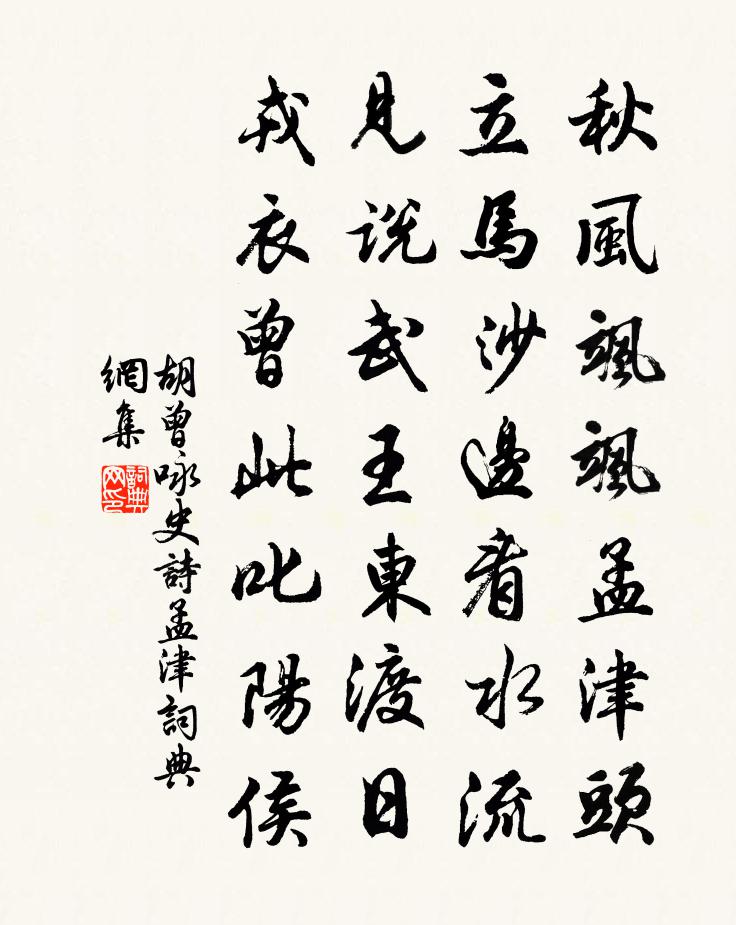 秋風颯颯孟津頭
立馬沙邊看水流
見説武王東渡日
戎衣曾此叱陽侯
胡曾咏史詩孟津詞典
網集
詞典網印